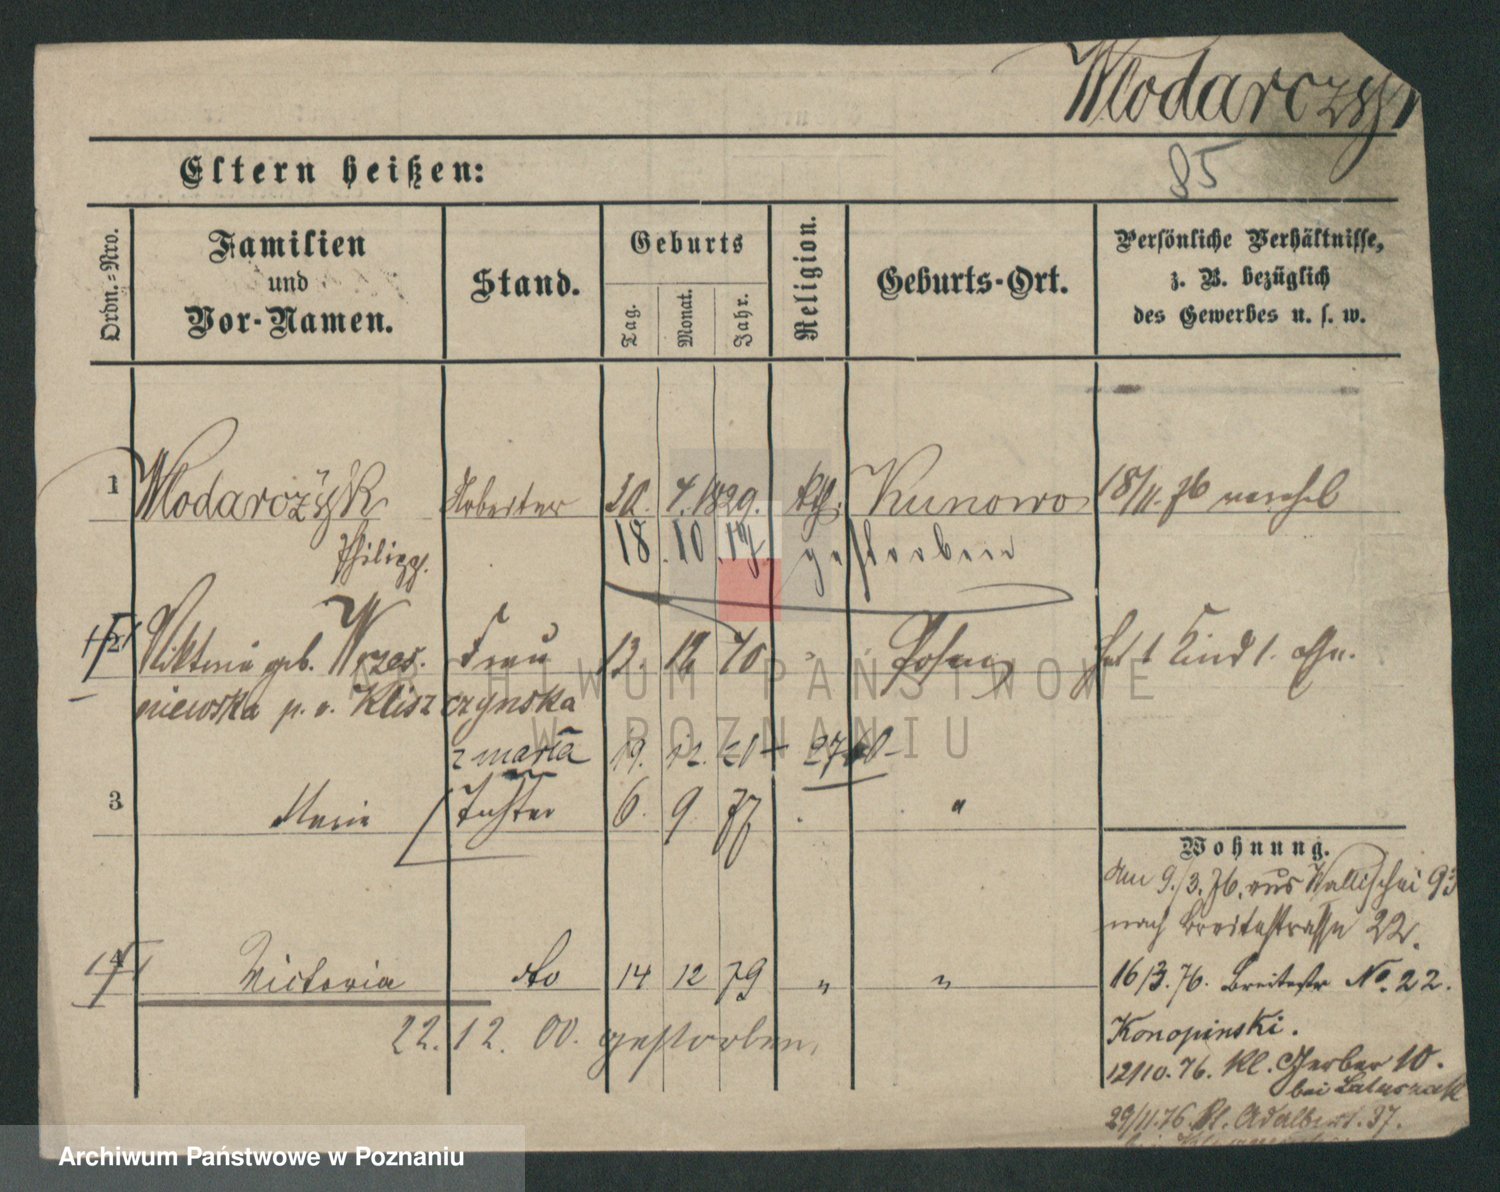 Wlodarczyk
85
Eltern heißen:
Ordn.-Nro.
Familien
und
Vor-Namen.
Stand.
Geburts
Tag.
Monat.
Jahr.
Religion.
Geburts-Ort.
Persönliche Verhältnisse,
z. B. bezüglich
des Gewerbes u. s. w.
1 Wlodarczyk Arbeiter 20. 4. 1829. kth. Kunowo 18/11. 76
Philipp. 18. 10. gestorben
2 Viktoria geb. Wrzes- Frau 12. 12. 40 Posen hat 1 Kind
niewska p. v. Kliszczynska
zmarła 19. 12.
3 Marie Tochter 6. 9. 77 "
4 Victoria do 14 12 79 " "
22. 12. 00. gestorben.
Wohnung.
Am 9./3. 76. aus Wallischei 93
nach Breitestrasse 22.
16/3. 76. Breitestr No. 22.
Konopinski.
12/10. 76. Kl. Gerber 10.
bei
29/11. 76 Kl. Adalbert. 37.
ARCHIWUM PAŃSTWOWE
W POZNANIU
Archiwum Państwowe w Poznaniu